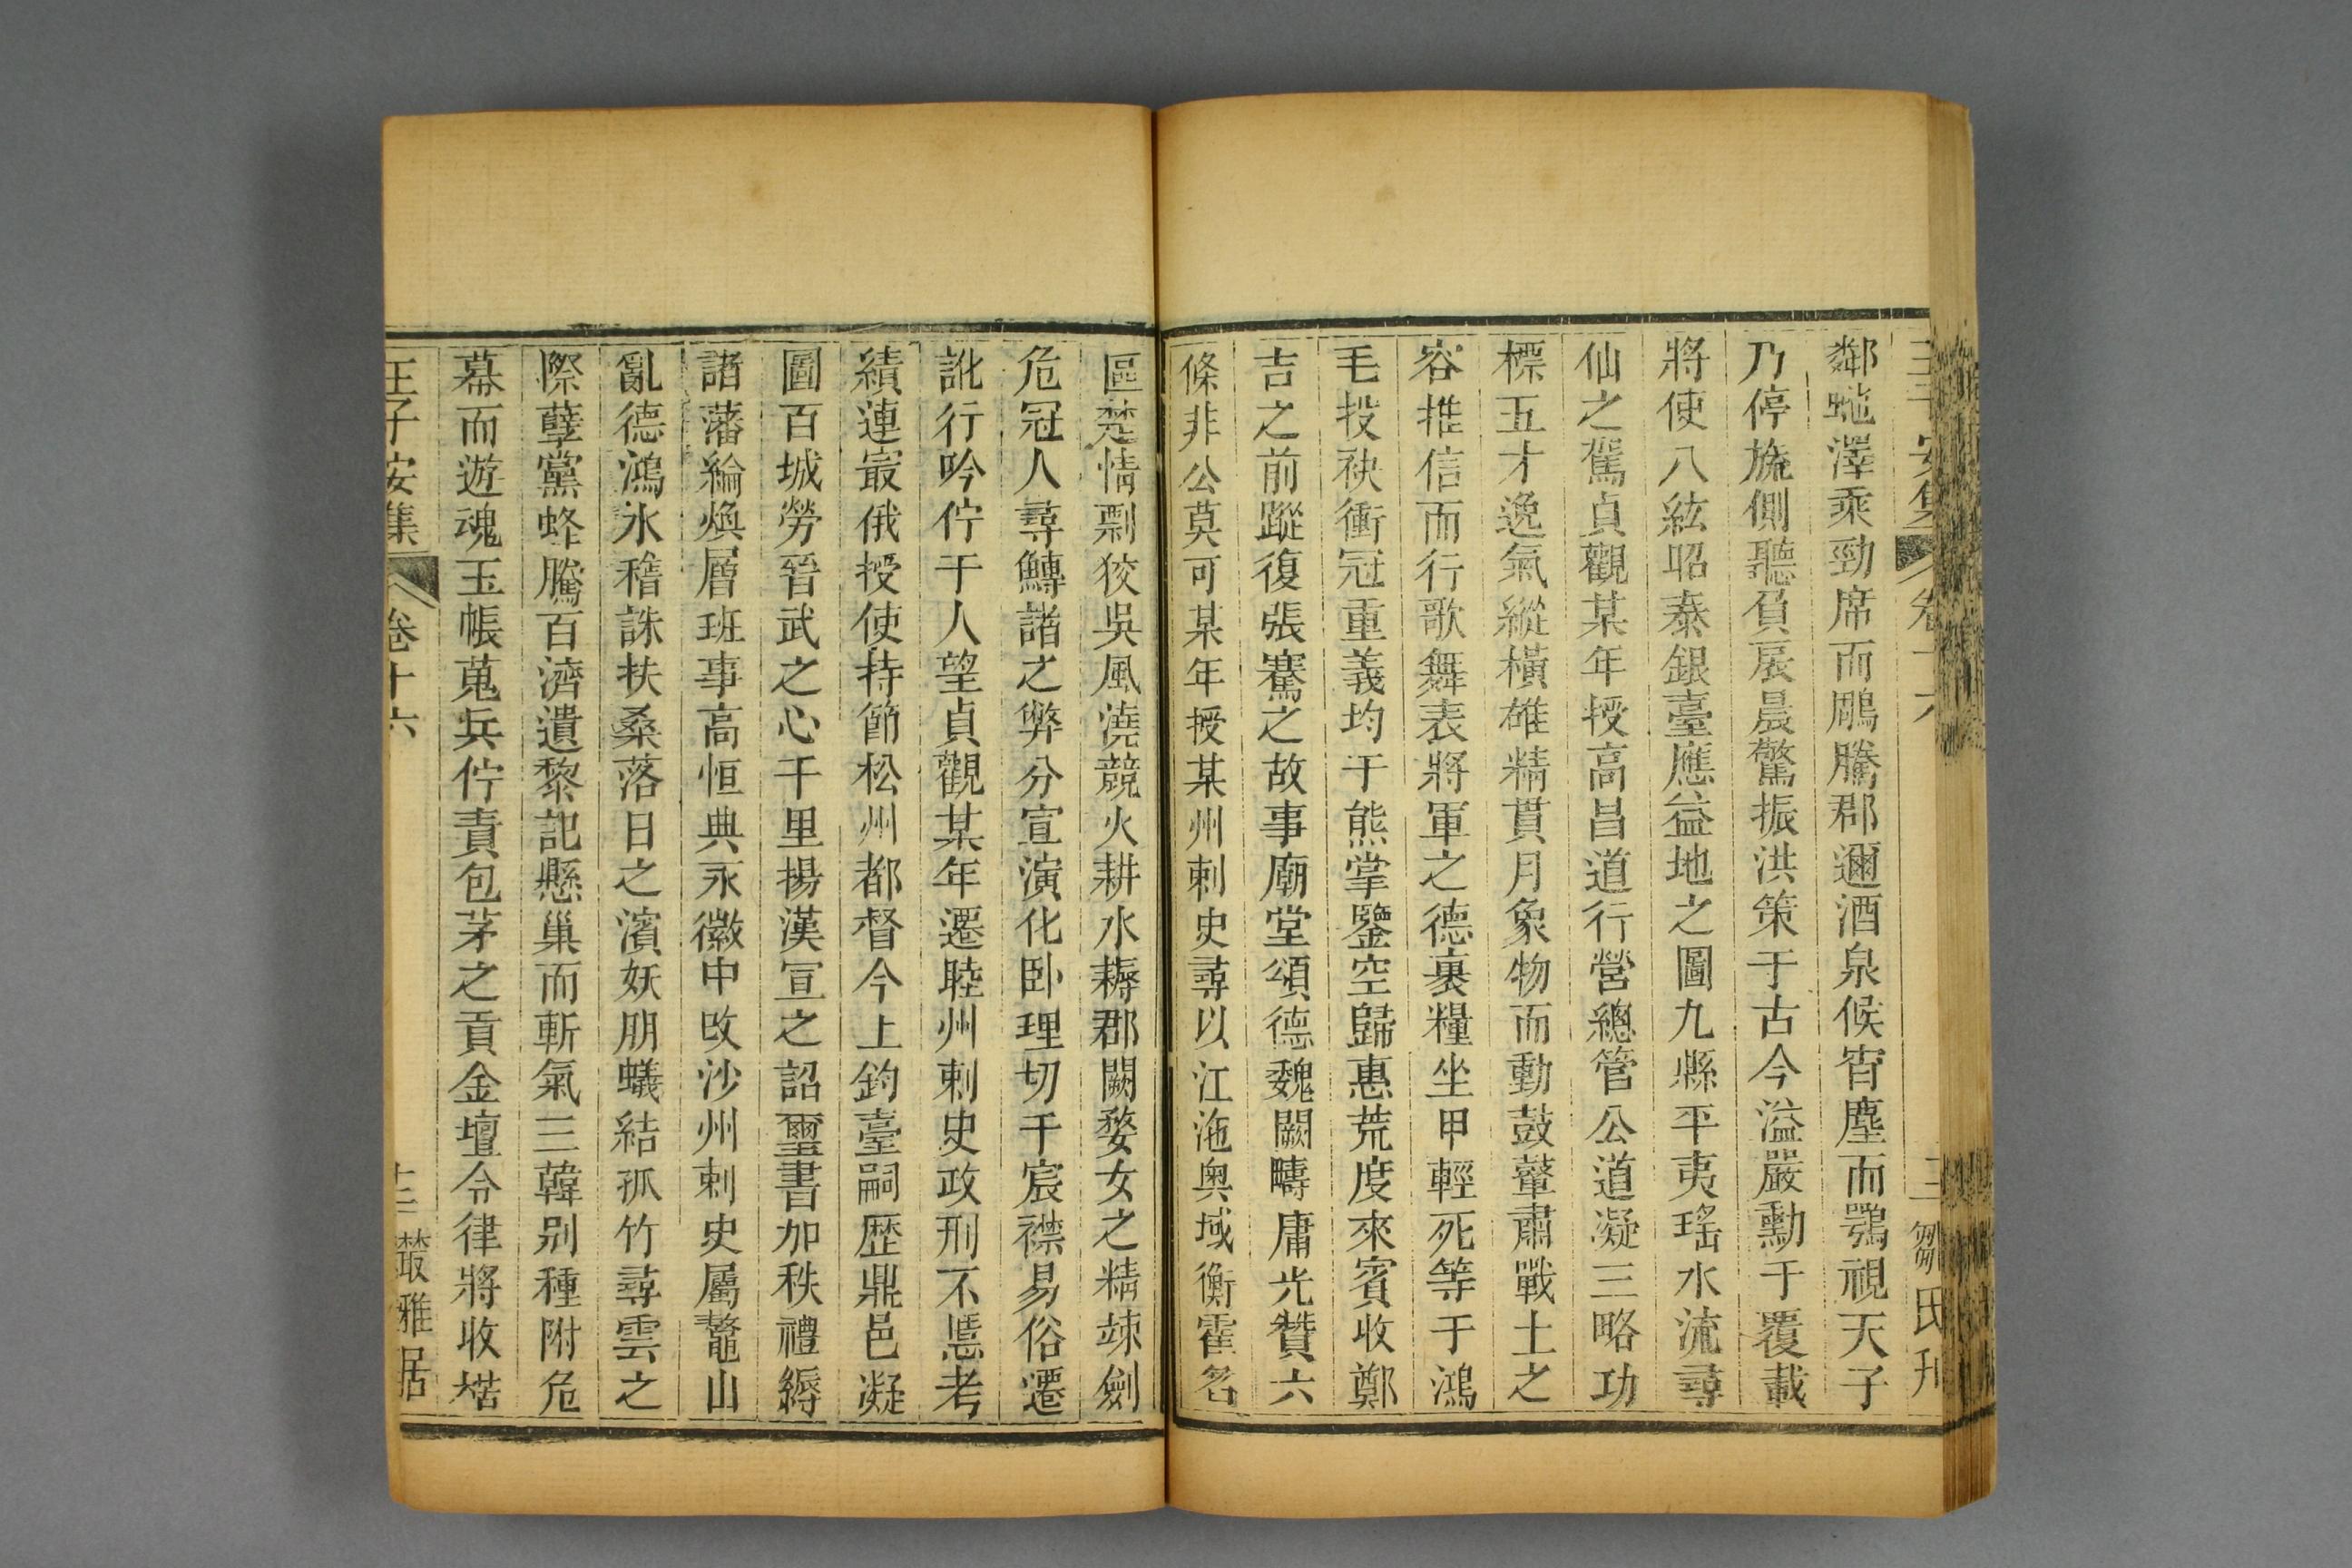 鄰虵澤乘勁席而鵰騰郡邇酒泉候宵塵而鶚視天子
乃停旒側聽負扆晨驚振洪策于古今溢嚴勳于覆載
將使八紘昭泰銀臺應益地之圖九縣平夷瑤水流尋
仙之駕貞觀某年授高昌道行營總管公道凝三略功
標五才逸氣縱橫雄精貫月象物而動鼓鞞肅戰士之
容推信而行歌舞表將軍之德裹糧坐甲輕死等于鴻
毛投袂衝冠重義均于熊掌鑒空歸惠荒度來賓收鄭
吉之前蹤復張騫之故事廟堂頌德魏闕疇庸光贊六
條非公莫可某年授某州刺史尋以江沲奧域衡霍名
區楚情剽狡吳風澆競火耕水耨郡闕婺女之精竦劍
危冠人尋鱄諸之弊分宣演化卧理切于宸襟易俗遷
訛行吟佇于人望貞觀某年遷睦州刺史政刑不愆考
績連寂俄授使持節松州都督今上鈞臺嗣歷鼎邑凝
圖百城勞晉武之心千里揚漢宣之詔璽書加秩禮縟
諸藩綸煥層班事高恒典永徽中改沙州刺史屬鼇山
亂德鴻水稽誅扶桑落日之濱妖朋蟻結孤竹尋雲之
際孽黨蜂騰百濟遺黎記懸巢而斬氣三韓別種附危
幕而遊魂玉帳蒐兵佇責包茅之貢金壇令律將收楛
王子安集 卷十六 十三 藂雅居